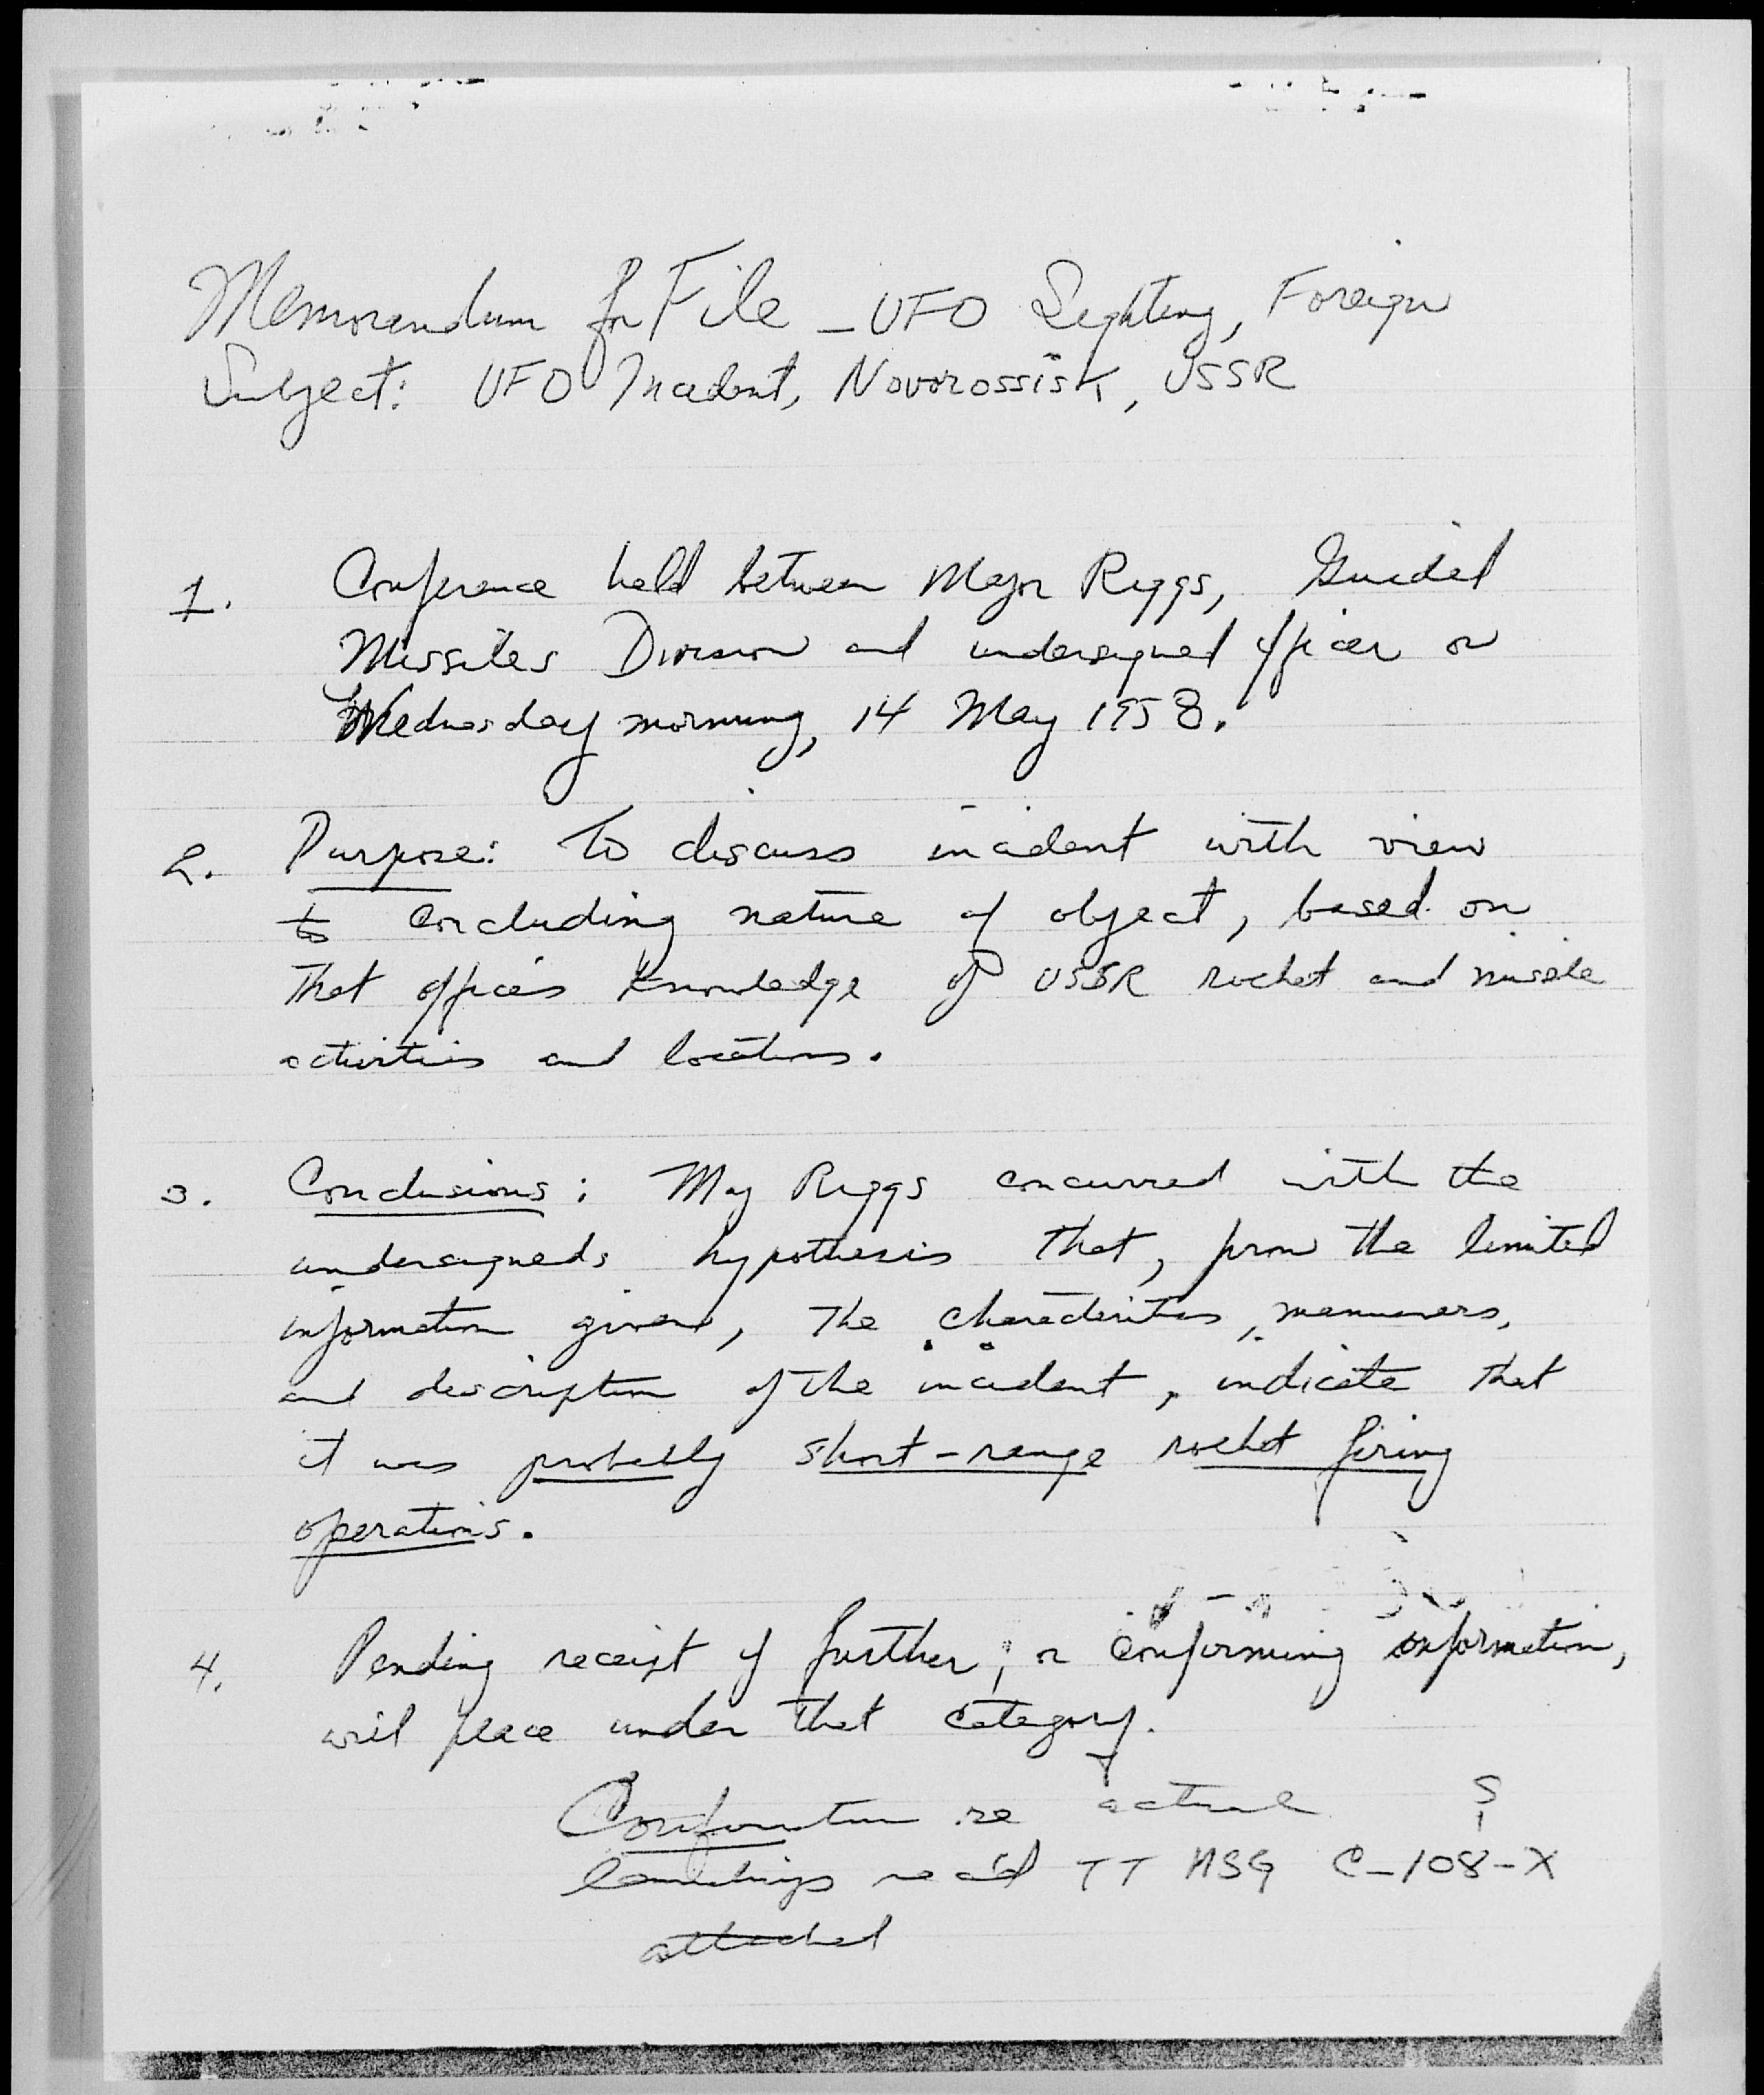 Memorandum for File - UFO Sighting, Foreign
Subject: UFO Incident, Novorossisk, USSR
1. Conference held between Major Riggs, Guided
Missiles Division and undersigned officer on
Wednesday morning, 14 May 1958.
2. Purpose: To discuss incident with view
to concluding nature of object, based on
that office's knowledge of USSR rocket and missile
activities and locations.
3. Conclusions: Maj Riggs concurred with the
undersigneds hypothesis that, from the limited
information given, the characteristics, maneuvers,
and description of the incident, indicate that
it was probably short-range rocket firing
operations.
4. Pending receipt of further, or confirming information,
will place under that category.
re actual S
rec'd TT MSG C-108-X
attached